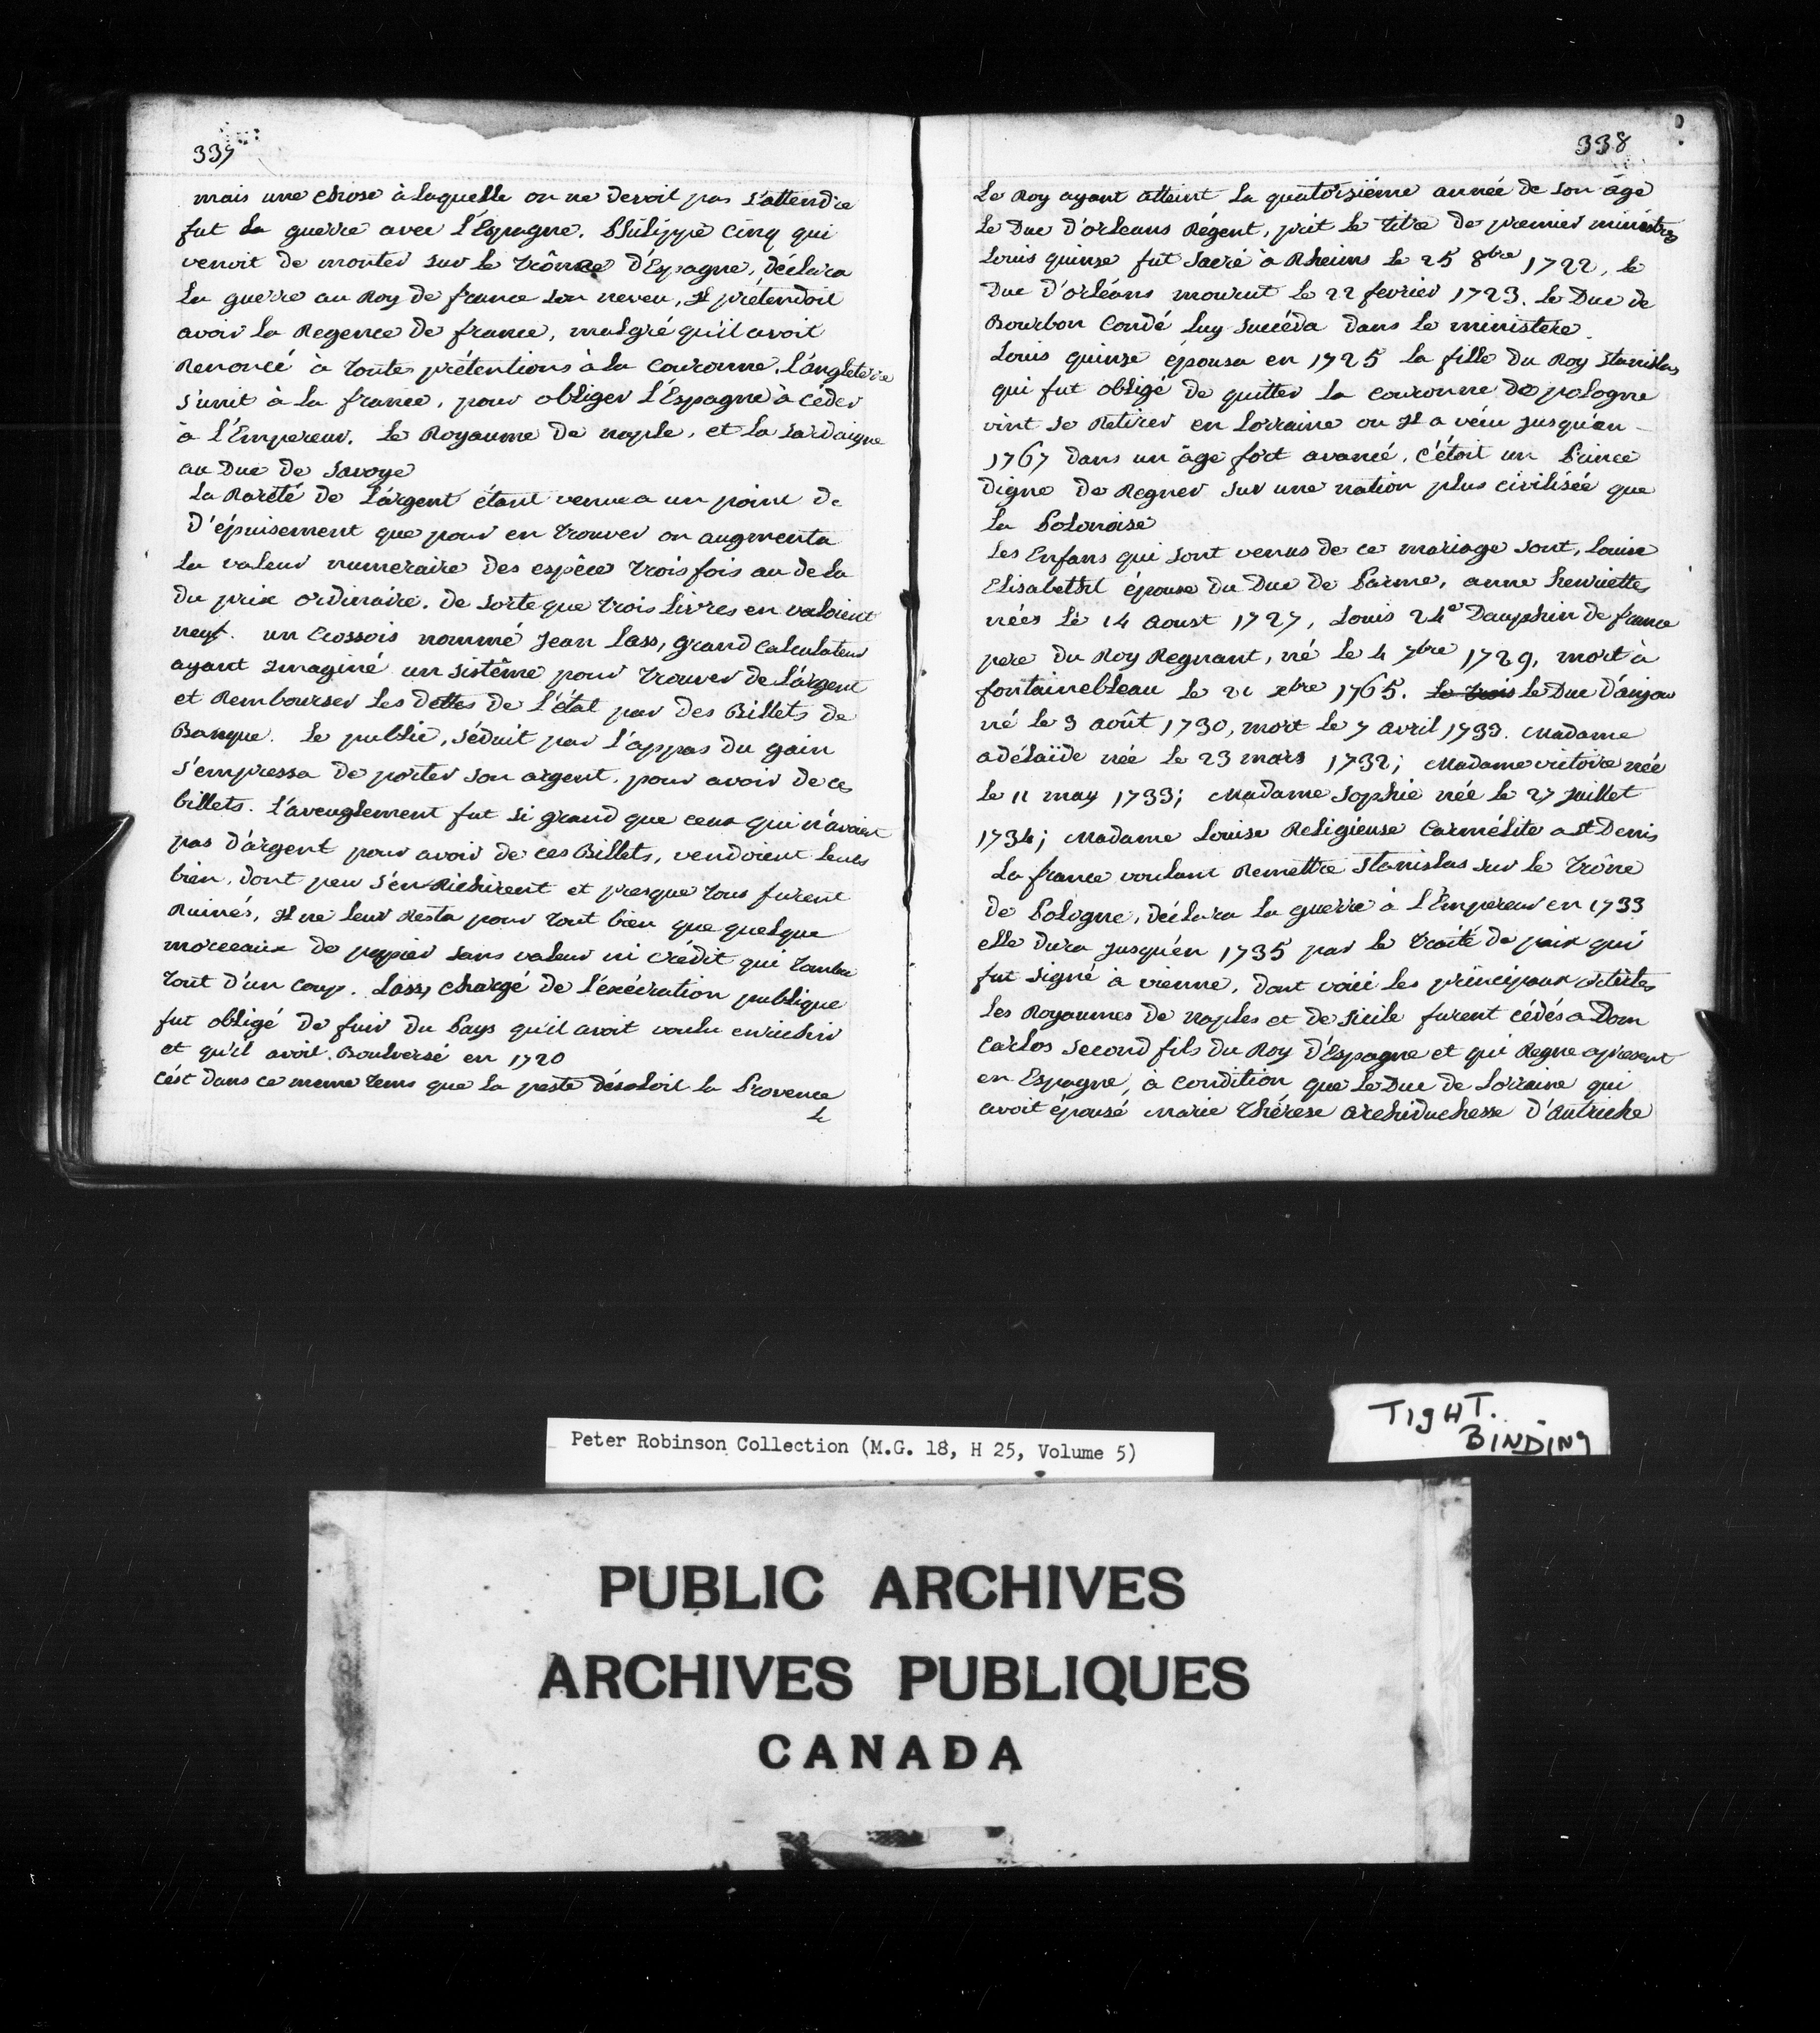 337
mais une chose à laquelle on ne devoit pas s'attendre
fut la guerre avec l'Espagne. Philippe cinq qui
venoit de monter sur le trône d'Espagne, déclara
la guerre au Roy de france son neveu, Il prétendoit
avoir la Regence de france, malgré qu'il avoit
Renoncé à toutes prétentions à la couronne. l'angleterre
s'unit à la france, pour obliger l'Espagne à céder
à l'Empereur, le Royaume de naple, et la sardaigne
au Duc de Savoye
La Rareté de l'argent étant venue a un point de
d'épuisement que pour en trouver on augmenta
la valeur numeraire des espèce trois fois au dela
du prix ordinaire. de sorte que trois livres en valoient
neuf. un Ecossois nommé Jean Lass, grand calculateur
ayant Imaginé un sistême pour trouver de l'argent
et Rembourser les dettes de l'état par des Billets de
Banque. le public, séduit par l'appas du gain
s'empressa de porter son argent, pour avoir de ces
billets. l'aveuglement fut si grand que ceux qui n'avoient
pas d'argent pour avoir de ces Billets, vendoient leurs
bien, dont peu s'en Richirent et presque tous furent
Ruinés, Il ne leur Resta pour tout bien que quelque
morceaux de papier sans valeur ni crédit qui tomba
tout d'un coup. Lass, chargé de l'exécration publique
fut obligé de fuir du Pays qu'il avoit voulu enrichir
et qu'il avoit Boulversé en 1720
C'est dans ce meme tems que la peste désoloit la Provence
Le
338
Le Roy ayant atteint la quatorsiéme année de son âge
Le Duc d'orleans Régent, prit le titre de premier ministre
Louis quinse fut sacré à Rheims le 25 8bre 1722, le
Duc d'orléans mourut le 22 fevrier 1723. le Duc de
Bourbon Condé luy succéda dans le ministere.
Louis quinse épousa en 1725 la fille du Roy Stanislas
qui fut obligé de quitter la couronne de pologne
vint se Retirer en Lorraine ou Il a vécu jusqu'en
1767 dans un âge fort avancé. c'étoit un Prince
digne de Regner sur une nation plus civilisée que
la Polonoise
Les Enfans qui sont venus de ce mariage sont, Louise
Elisabetht épouse du Duc de Parme, anne henriette
nées le 14 aoust 1727, Louis 24e Dauphin de france
pere du Roy Regnant, né le 4 7bre 1729, mort à
fontainebleau le 21 xbre 1765. Le trois le Duc d'anjou
né le 3 août 1730, mort le 7 avril 1733. Madame
adélaïde née le 23 mars 1732; Madame victoire née
le 11 may 1733; Madame Sophie née le 27 juillet
1734; Madame Louise Religieuse Carmélite a St Denis
La france voulant Remettre Stanislas sur le trône
de Pologne, déclara la guerre à l'Empereur en 1733
elle dura jusqu'en 1735 par le traité de paix qui
fut signé à vienne, dont voici les principaux articles
Les Royaumes de naples et de Sicile furent cédés a Dom
Carlos second fils du Roy d'Espagne et qui Regne apresent
en Espagne, à condition que le Duc de Lorraine qui
avoit épousé Marie Thérese archiduchesse d'autriche
TIGHT.
BINDING
Peter Robinson Collection (M.G. 18, H 25, Volume 5)
PUBLIC ARCHIVES
ARCHIVES PUBLIQUES
CANADA